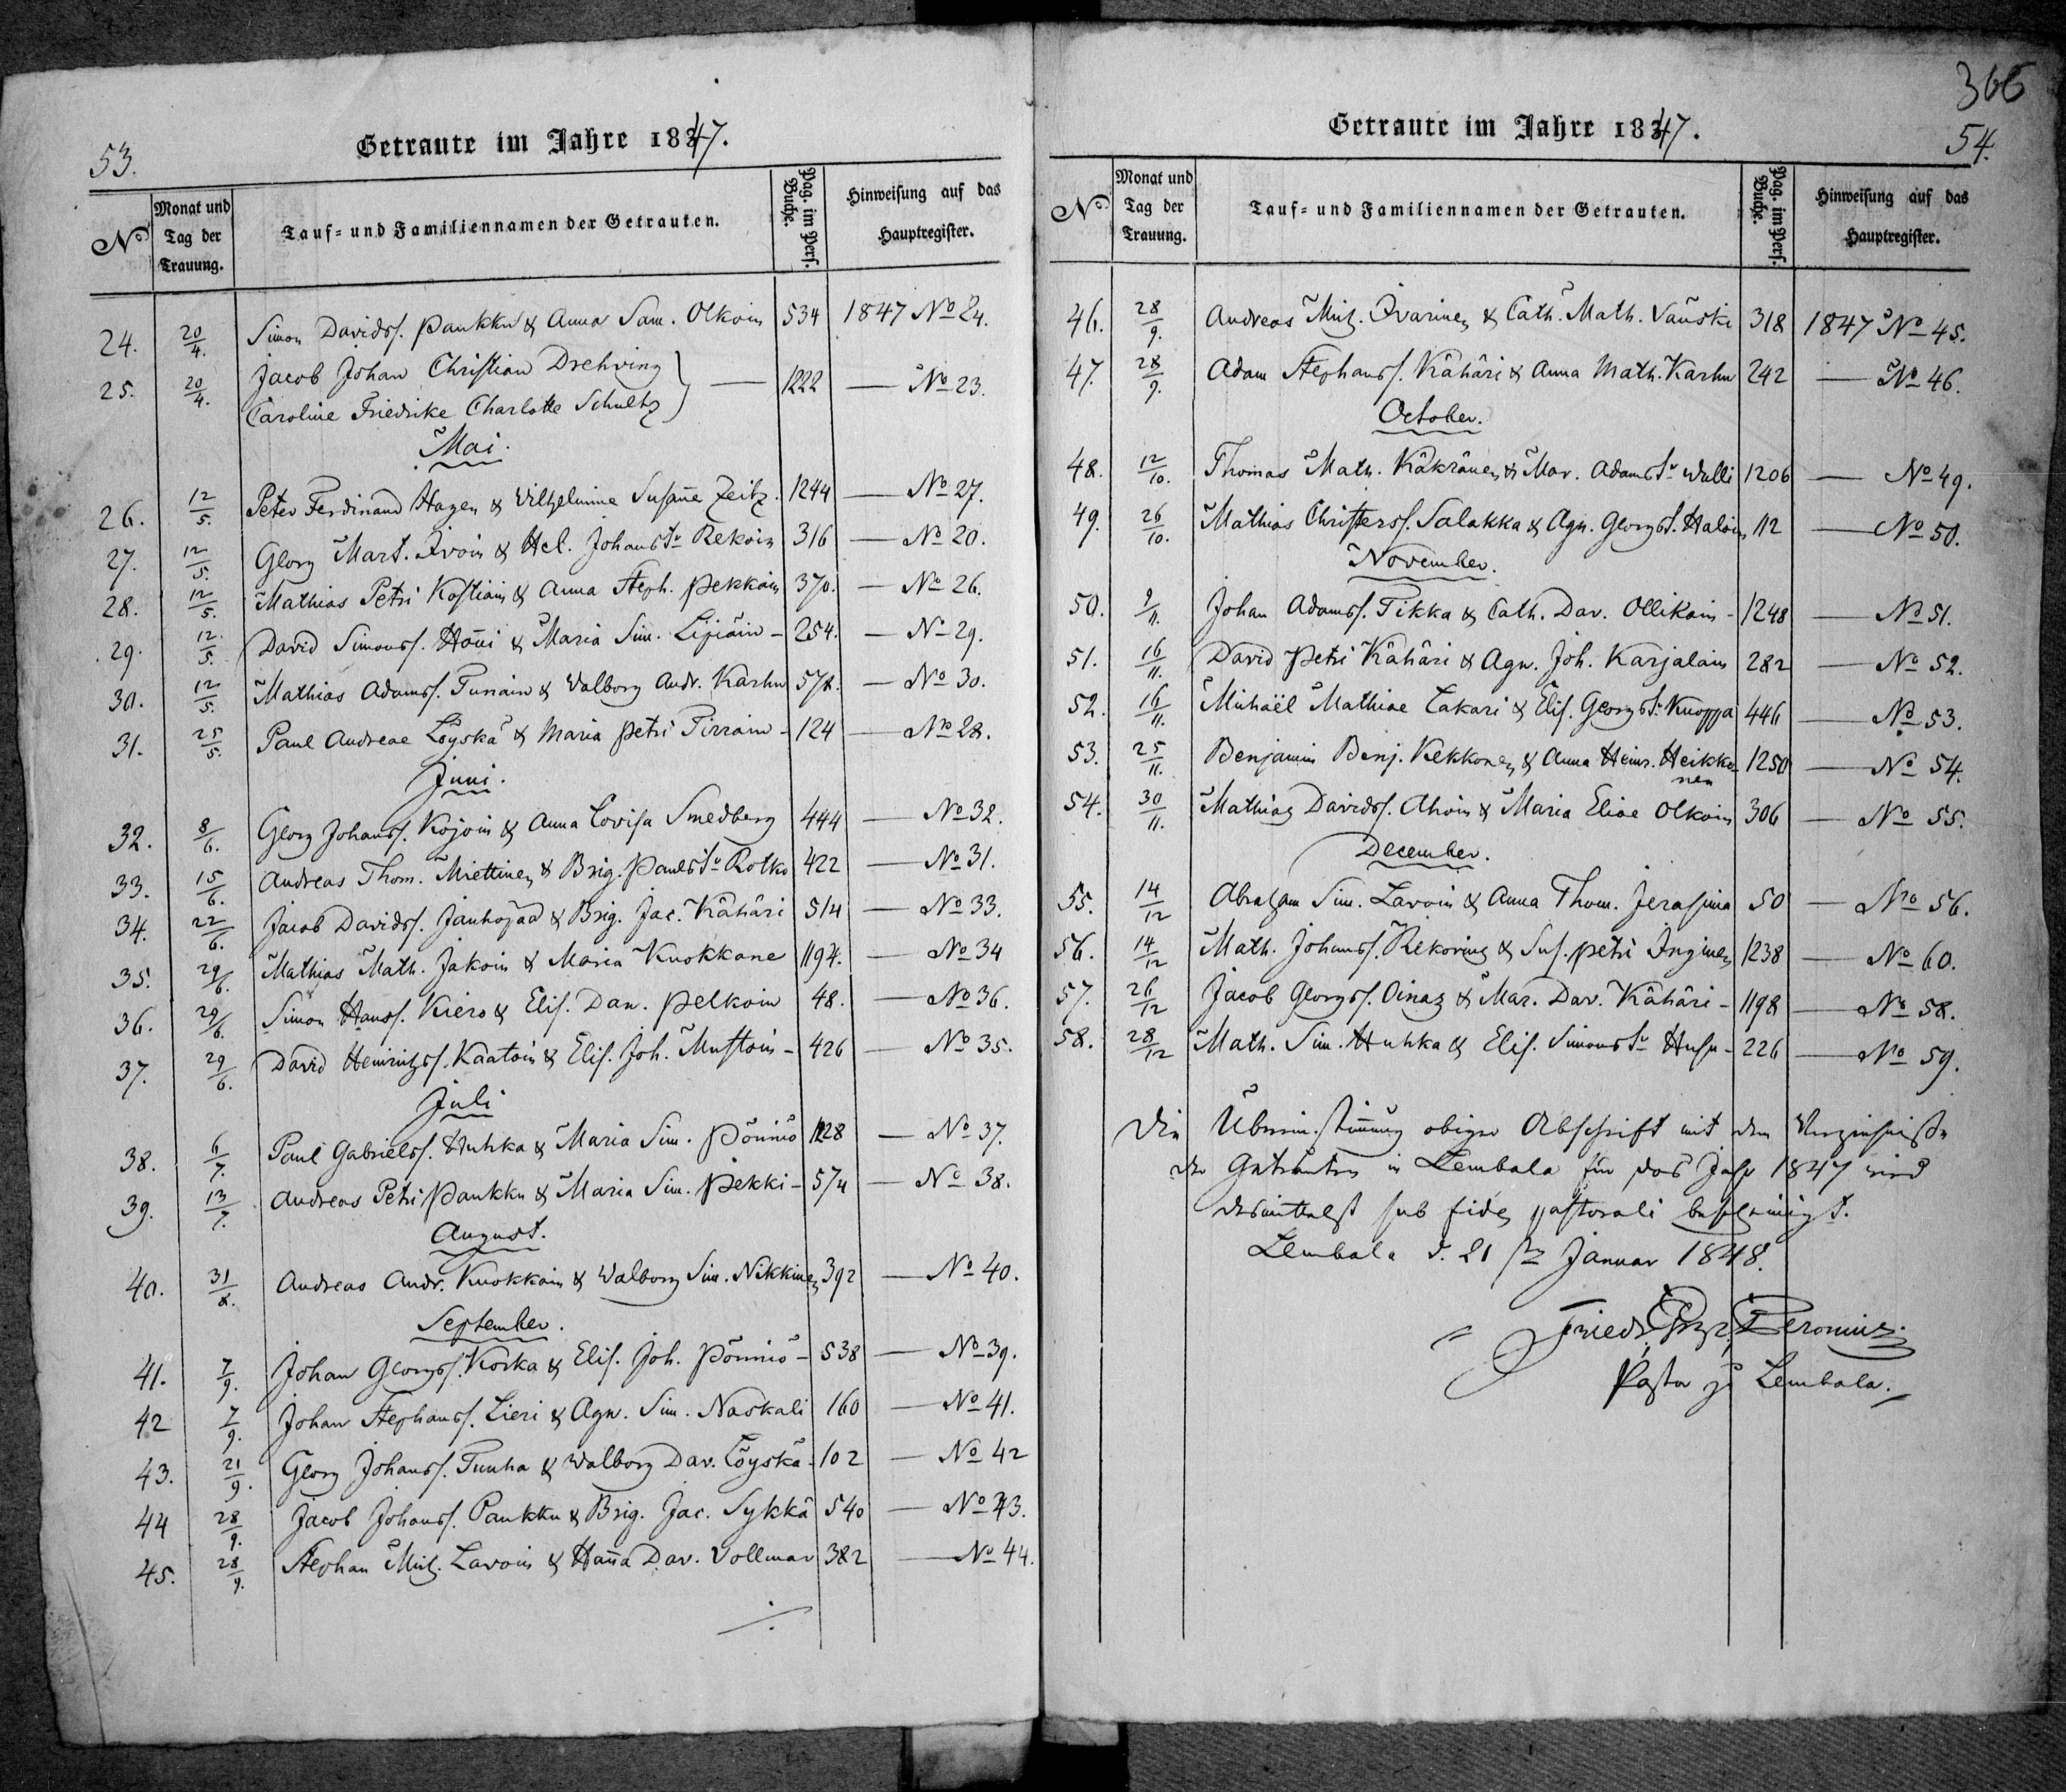 53.
Getraute im Jahre 1847.
No
Monat und Tag der Trauung.
Tauf- und Familiennamen der Getrauten.
Pag. im Pers. Buche.
Hinweisung auf das Hauptregister.
24. 20/4. Simon Davidss. Paukku & Anna Sam. Olkoin 534 1847 No 24.
25. 20/4. Jacob Johan Christian Drehving
Caroline Friedrike Charlotte Schultz — 1222 — No 23.
Mai.
26. 12/5. Peter Ferdinand Hagen & Wilhelmine Susañe Zeitz. 1244 — No 27.
27. 12/5. Georg Mart. Ivoin & Hel. Johanstr Rekoin 316 — No 20.
28. 12/5. Mathias Petri Kostiain & Anna Steph. Pekkain 370. — No 26.
29. 12/5. David Simonss. Hoñi & Maria Sim. Lipiäin - 254. — No 29.
30. 12/5. Mathias Adamss. Tunain & Walborg Andr. Karhu 578. — No 30.
31. 25/5. Paul Andreae Löyskä & Maria Petri Pirrain - 124 — No 28.
Juni.
32. 8/6. Georg Johanss. Kojoin & Anna Lovisa Smedberg 444 — No 32.
33. 15/6. Andreas Thom. Miettinen & Brig. Paulstr Rotko 422 — No 31.
34. 22/6. Jacob Davidss. & Brig. Jac. Kähäri 514 — No 33.
35. 29/6. Mathias Math. Jakoin & Maria Kuokkane 1194. — No 34
36. 29/6. Simon Hanss. Kiero & Elis. Dan. Pelkoin 48. — No 36.
37. 29/6. David Heinrichss. Kaatoin & Elis. Joh. Mustoin - 426 — No 35.
Juli
38. 6/7. Paul Gabrielss. Huhka & Maria Sim. Pönniö 1228 — No 37.
39. 13/7. Andreas Petri Paukku & Maria Sim. Pekki - 574 — No 38.
August.
40. 31/8. Andreas Andr. Kuokkain & Walborg Sim. Nikkinen 392 — No 40.
September.
41. 7/9. Johan Georgss. Korka & Elis. Joh. Pönniö - 538 — No 39.
42 7/9. Johan Stephanss. Lieri & Agn. Sim. Naskali 160 — No 41.
43. 21/9. Georg Johanss. Tuuha & Walborg Dav. Löyskä - 102 — No 42
44 28/9. Jacob Johanss. Paukku & Brig. Jac. Sykkä 540 — No 43.
45. 28/9. Stephan Mich. Lavoin & Hanna Dav. Vollmar 382 — No 44.
366
54.
Getraute im Jahre 1847.
No
Monat und Tag der Trauung.
Tauf- und Familiennamen der Getrauten.
Pag. im Pers. Buche.
Hinweisung auf das Hauptregister.
46. 28/9. Andreas Mich. Ivarinen & Cath. Math. Vauski 318 1847 No 45.
47. 28/9. Adam Stephanss. Kähäri & Anna Math. Karhu 242 — No 46.
October.
48. 12/10. Thomas Math. Käkränen & Mar. Adamstr Walli 1206 — No 49.
49. 26/10. Mathias Christerss. Salakka & Agn. Georgst. Haloin 112 — No 50.
November.
50. 9/11. Johan Adamss. Tikka & Cath. Dav. Ollikain - 1248 — No 51.
51. 16/11. David Petri Kähäri & Agn. Joh. Karjalain 282 — No 52.
52. 16/11. Michaël Mathiae Lakari & Elis. Georgstr Knoppa 446 — No 53.
53. 25/11. Benjamin Benj. Kekkonen & Anna Heinr. Heikkonen 1250 — No 54.
54. 30/11. Mathias Davidss. Ahoin & Maria Eliae Olkoin 306 — No 55.
December.
55. 14/12 Abraham Sim. Lavoin & Anna Thom. Jerasima 50 — No 56.
56. 14/12 Math. Johanss. Rekorine & Sus. Petri Inginen 1238 — No 60.
57. 26/12 Jacob Georgss. Oinas & Mar. Dav. Kähäri - 1198 — No 58.
58. 28/12 Math. Sim. Huhka & Elis. Simonstr Husu - 226 — No 59.
Die Übereinstimmung obiger Abschrift mit dem Verzeichnisse
der Getrauten in Lembala für das Jahr 1847 wird
desmittelst sub fide pastorali bescheinigt.
Lembala d. 21 sten Januar 1848.
Friedr.
Pastor zu Lembala.